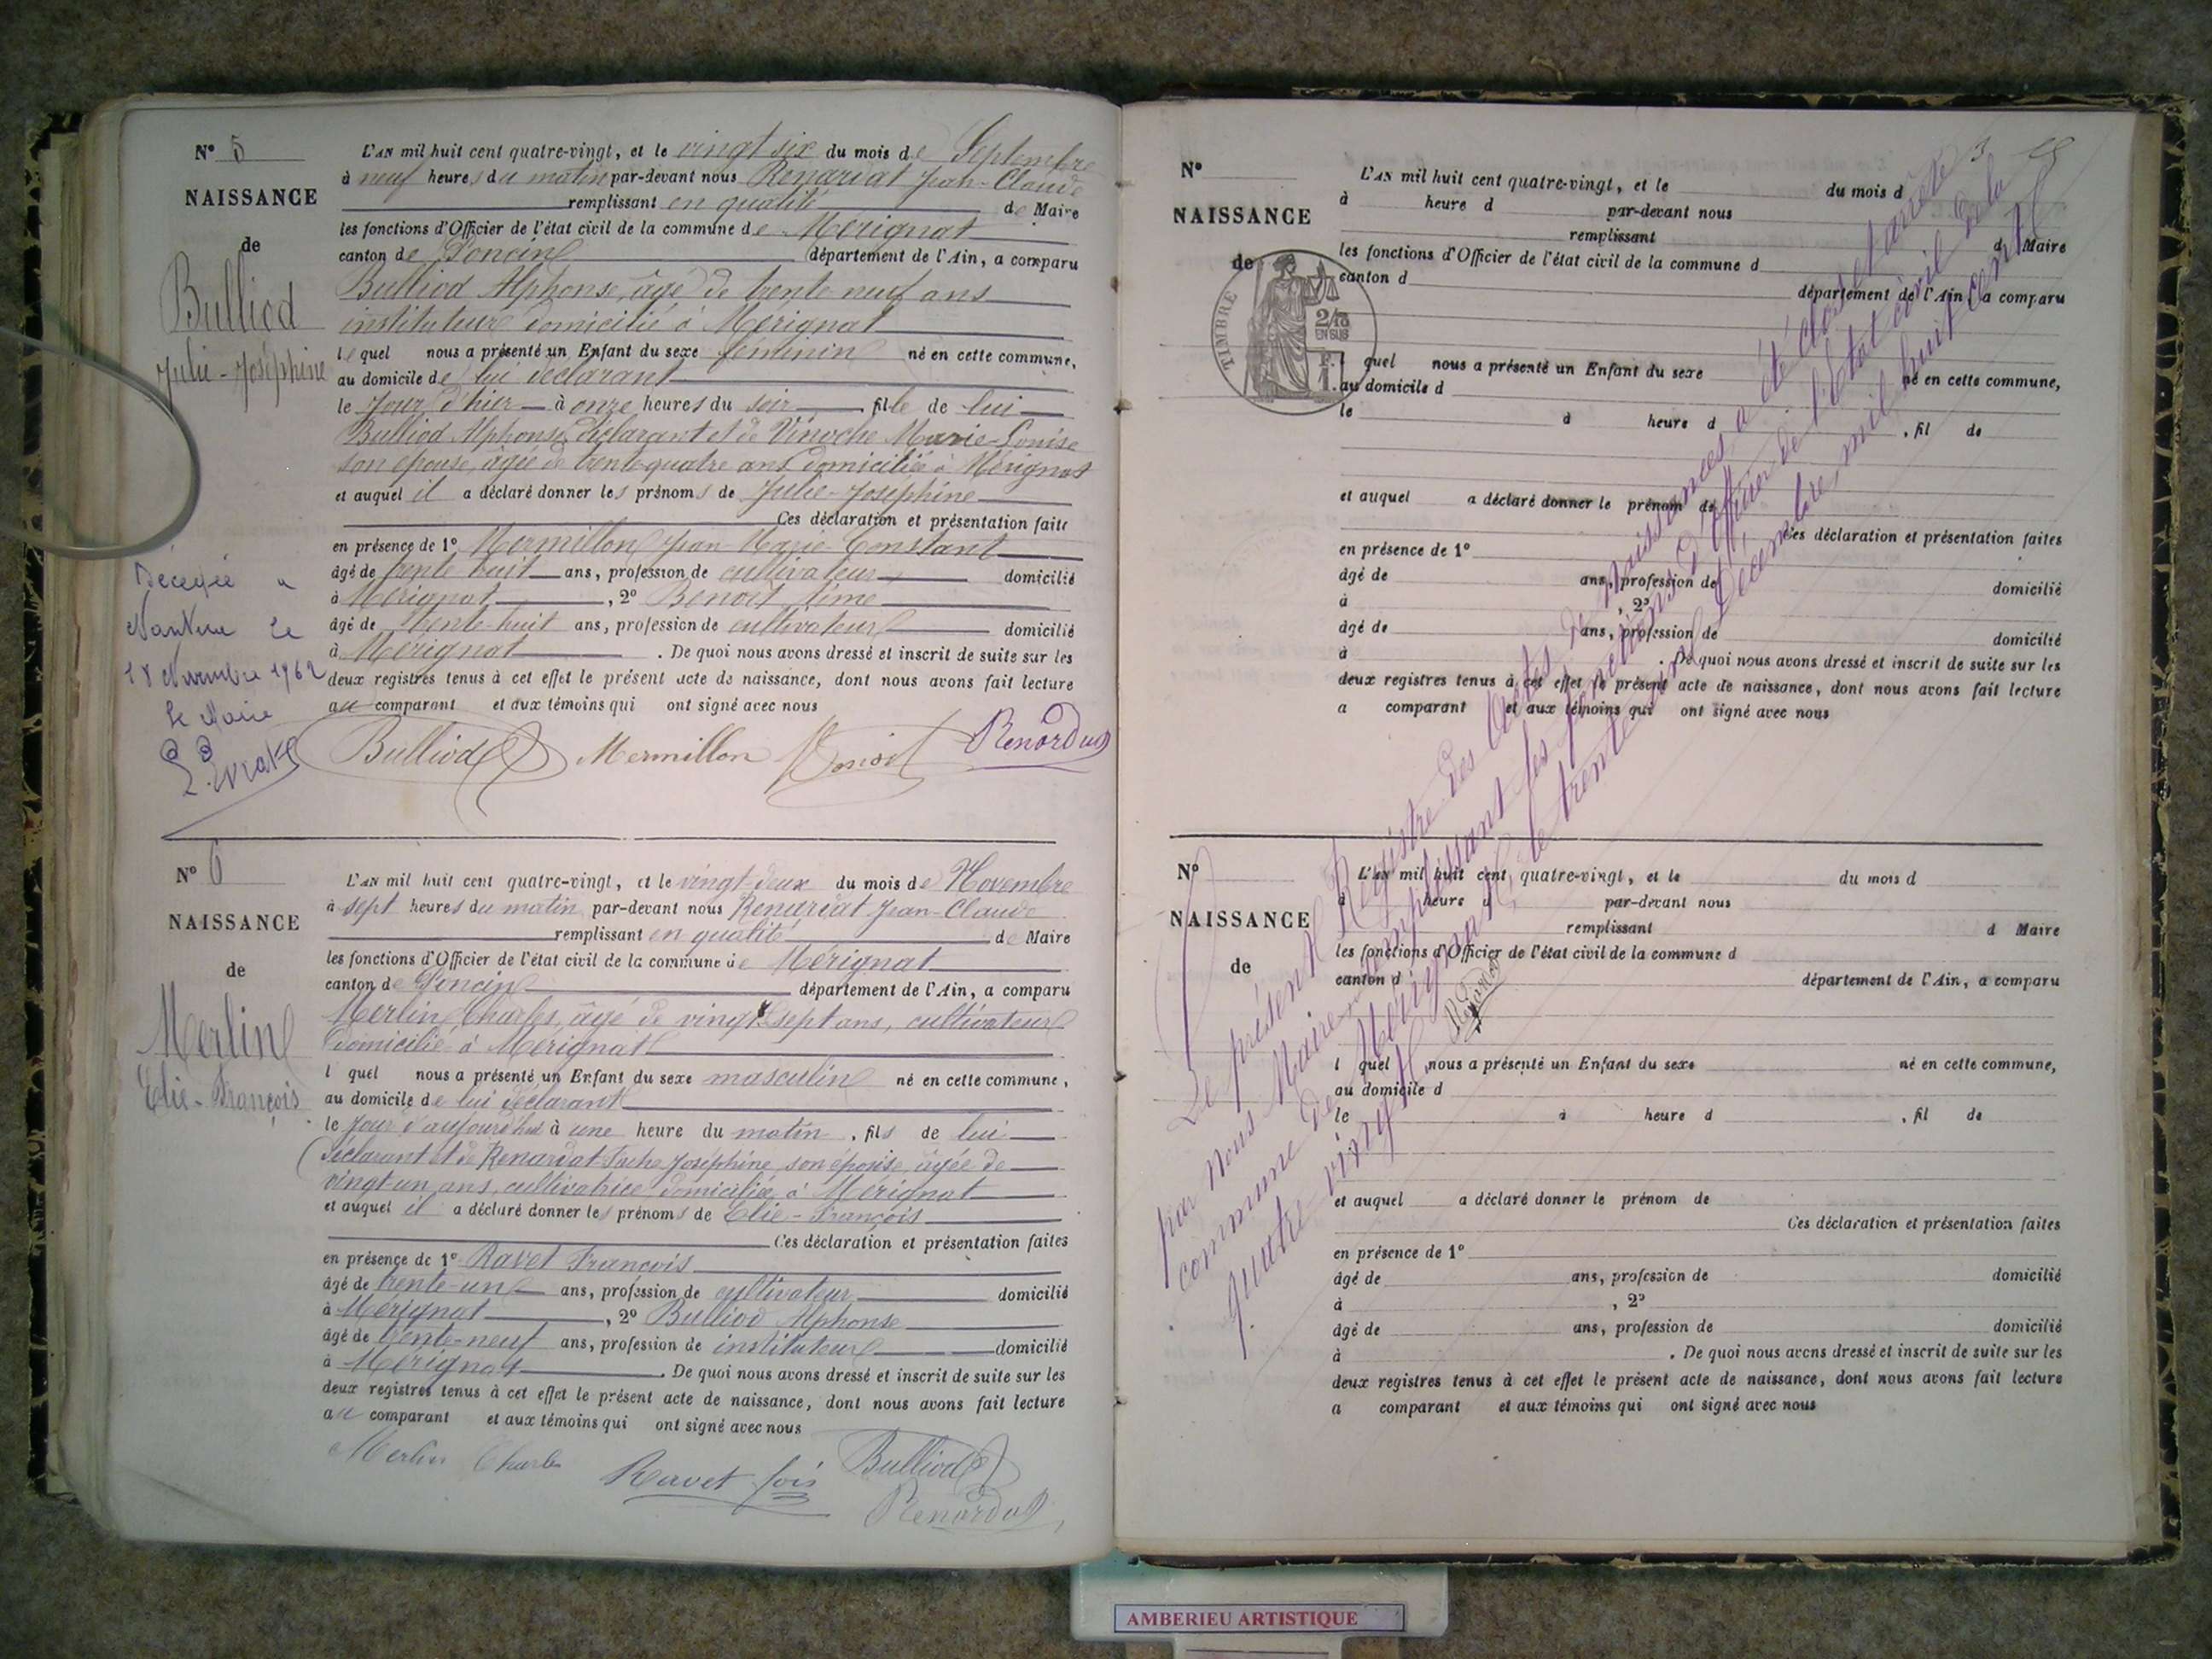 N° 5
NAISSANCE
de
Bulliod
Julie-Joséphine
Décédée à
Nantua le
18 Novembre 1962
le Maire
L'AN mil huit cent quatre-vingt, et le vingt six du mois de Septembre
à neuf heures du matin par-devant nous Renardat Jean-Claude
remplissant en qualité de Maire
les fonctions d'Officier de l'état civil de la commune de Mérignat
canton de Poncin département de l'Ain, a comparu
Bulliod Alphonse, âgé de trente neuf ans
instituteur domicilié à Mérignat
lequel nous a présenté un Enfant du sexe féminin né en cette commune,
au domicile de lui déclarant
le jour d'hier à onze heures du soir, fille de lui
Bulliod Alphonse déclarant et de Vinoche Marie-Louise
son épouse, âgée de trente quatre ans domiciliée à Mérignat
et auquel il a déclaré donner les prénoms de Julie-Joséphine
Ces déclaration et présentation faite
en présence de 1° Mermillon Jean-Marie-Constant
âgé de trente huit ans, profession de cultivateur domicilié
à Mérignat, 2° Benoit
âgé de trente huit ans, profession de cultivateur domicilié
à Mérignat. De quoi nous avons dressé et inscrit de suite sur les
deux registres tenus à cet effet le présent acte de naissance, dont nous avons fait lecture
au comparant et aux témoins qui ont signé avec nous
Bulliod Mermillon Benoit Renardat
N° 6
NAISSANCE
de
Merlin
Elie-François
L'AN mil huit cent quatre-vingt, et le vingt-deux du mois de Novembre
à sept heures du matin par-devant nous Renardat Jean-Claude
remplissant en qualité de Maire
les fonctions d'Officier de l'état civil de la commune de Mérignat
canton de Poncin département de l'Ain, a comparu
Merlin Charles, âgé de vingt sept ans, cultivateur
domicilié à Mérignat
l quel nous a présenté un Enfant du sexe masculin né en cette commune,
au domicile de lui déclarant
le jour d'aujourd'hui à une heure du matin, fils de lui
déclarant et de Renardat Joséphine, son épouse, âgée de
vingt un ans, cultivatrice domiciliée à Mérignat
et auquel il a déclaré donner les prénoms de Elie-François
Ces déclaration et présentation faites
en présence de 1° Ravet François
âgé de trente-un ans, profession de cultivateur domicilié
à Mérignat, 2° Bulliod Alphonse
âgé de trente-neuf ans, profession de instituteur domicilié
à Mérignat. De quoi nous avons dressé et inscrit de suite sur les
deux registres tenus à cet effet le présent acte de naissance, dont nous avons fait lecture
au comparant et aux témoins qui ont signé avec nous
Merlin Charles Ravet fois Bulliod
Renardat
N°
NAISSANCE
de
TIMBRE
2/10
EN SUS
L'AN mil huit cent quatre-vingt, et le du mois d
à heure d par-devant nous
remplissant d Maire
les fonctions d'Officier de l'état civil de la commune d
canton d département de l'Ain, a comparu
l quel nous a présenté un Enfant du sexe né en cette commune,
au domicile d
le à heure d , fil de
et auquel a déclaré donner le prénom de
Ces déclaration et présentation faites
en présence de 1°
âgé de ans, profession de domicilié
à , 2°
âgé de ans, profession de domicilié
à . De quoi nous avons dressé et inscrit de suite sur les
deux registres tenus à cet effet le présent acte de naissance, dont nous avons fait lecture
a comparant et aux témoins qui ont signé avec nous
Le présent Registre des Actes de Naissances a été clos et arrêté
par nous Maire remplissant les fonctions d'Officier de l'état civil de la
commune de Mérignat, le trente un Décembre, mil huit cent
quatre vingt.
Renardat
N°
NAISSANCE
de
L'AN mil huit cent quatre-vingt, et le du mois d
à heure d par-devant nous
remplissant d Maire
les fonctions d'Officier de l'état civil de la commune d
canton d département de l'Ain, a comparu
l quel nous a présenté un Enfant du sexe né en cette commune,
au domicile d
le à heure d , fil de
et auquel a déclaré donner le prénom de
Ces déclaration et présentation faites
en présence de 1°
âgé de ans, profession de domicilié
à , 2°
âgé de ans, profession de domicilié
à . De quoi nous avons dressé et inscrit de suite sur les
deux registres tenus à cet effet le présent acte de naissance, dont nous avons fait lecture
a comparant et aux témoins qui ont signé avec nous
AMBERIEU ARTISTIQUE